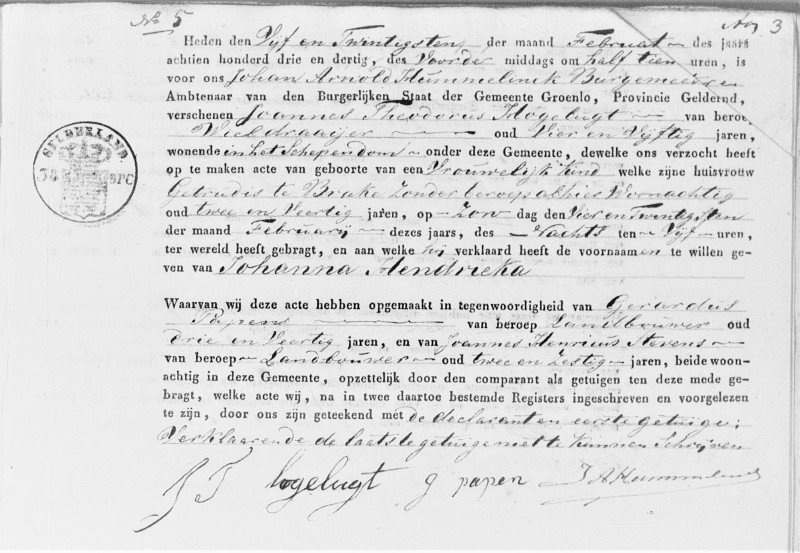 N.º 5
Heden den Vijf en Twintigsten der maand Februarÿ des jaars
achtien honderd drie en dertig, des Voorde middags om half tien uren, is
voor ons Johan Arnold Hummelinck Burgemeester
Ambtenaar van den Burgerlijken Staat der Gemeente Groenlo, Provincie Gelderland,
verschenen Joannes Theodorus Hogelugt van beroep
Wieldraaijer oud Vier en Vijftig jaren,
wonende in het Schependom onder deze Gemeente, dewelke ons verzocht heeft
op te maken acte van geboorte van een Vrouwelijk Kind welke zijne huisvrouw
Getrudis te Brake Zonder beroep alhier Woonachtig
oud twee en Veertig jaren, op Zon dag den Vier en Twintigsten
der maand Februarij dezes jaars, des Nachts ten Vijf uren,
ter wereld heeft gebragt, en aan welke hij verklaard heeft de voornaamen te willen ge-
ven van Johanna Hendrieka
Waarvan wij deze acte hebben opgemaakt in tegenwoordigheid van Gerardus
Papen van beroep Landbouwer oud
drie en Veertig jaren, en van Joannes Henricus Stevens
van beroep Landbouwer oud twee en Zestig jaren, beide woon-
achtig in deze Gemeente, opzettelijk door den comparant als getuigen ten deze mede ge-
bragt, welke acte wij, na in twee daartoe bestemde Registers ingeschreven en voorgelezen
te zijn, door ons zijn geteekend met de declarant en eerste getuige;
Verklaarende de laatste getuige niet te kunnen Schrijven
J T hogelugt g papen J A Hummelinck
GELDERLAND